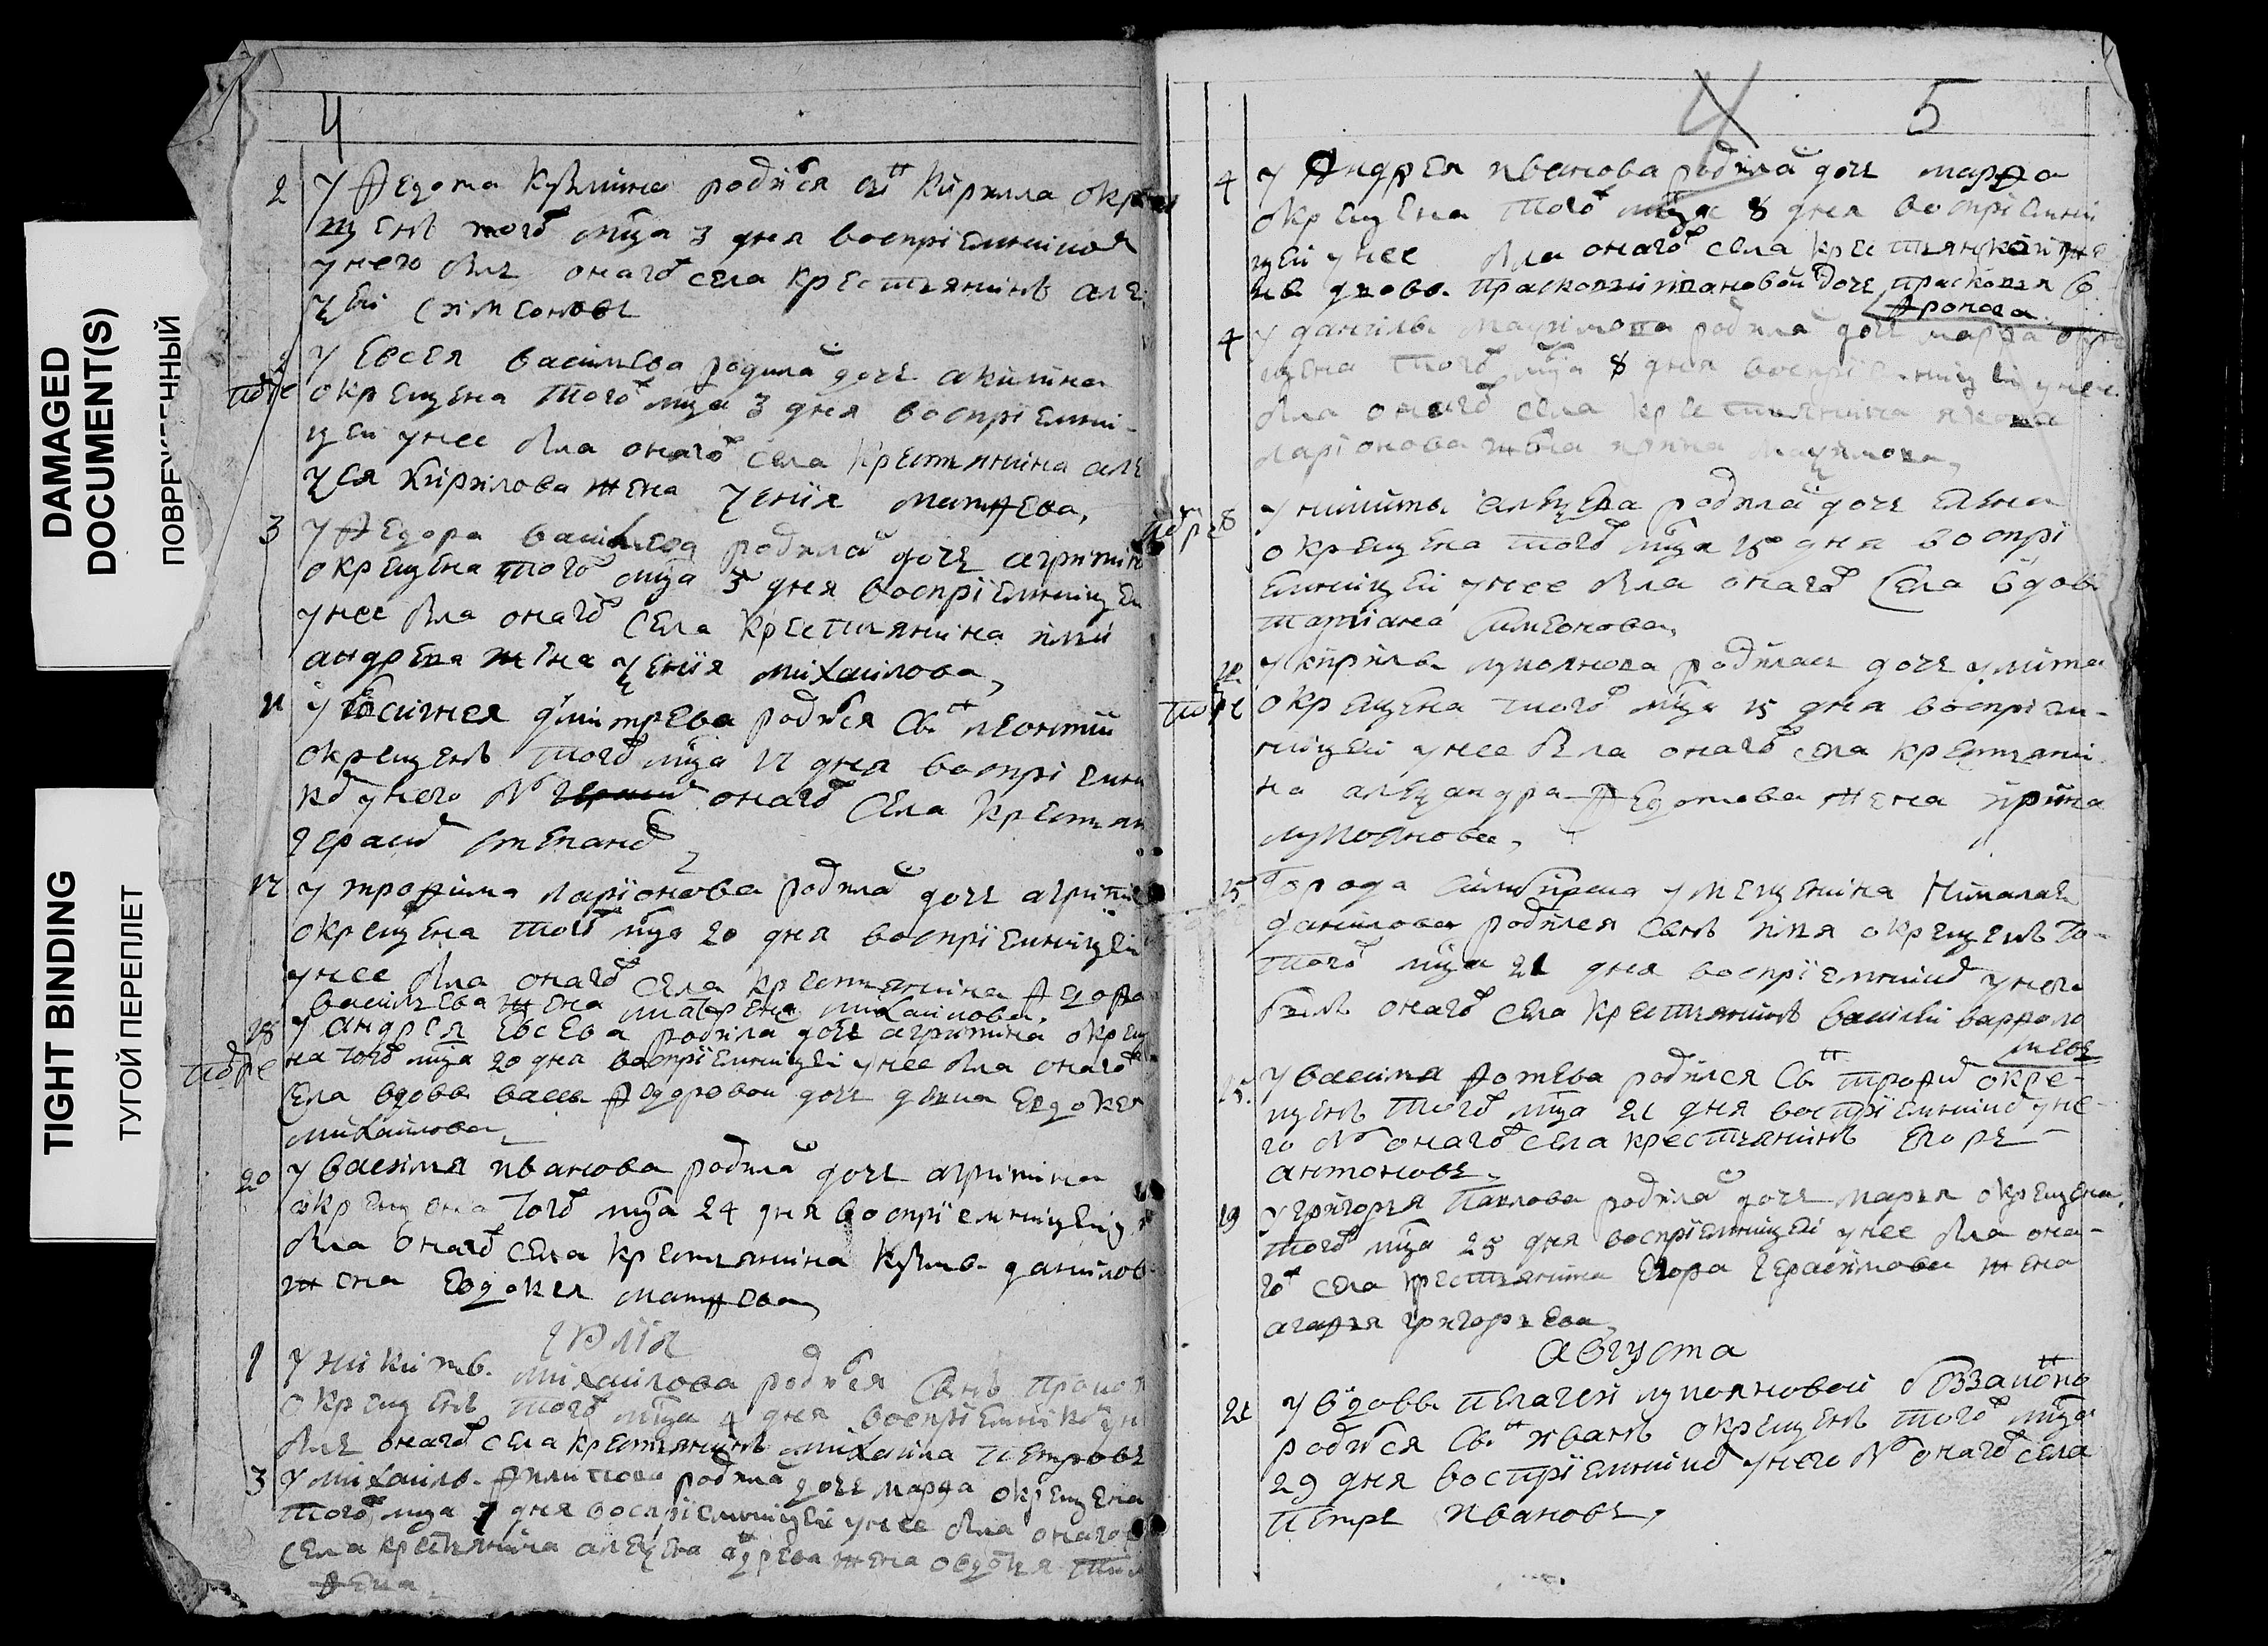 DAMAGED
DOCUMENT(S)
ПОВРЕЖДЕННЫЙ
TIGHT BINDING
ТУГОЙ ПЕРЕПЛЕТ
4
2 У Ѳедота Кузмина родился снъ Кирилла окре
щенъ того мца 3 дня воспрiемникомъ
у него былъ онаго села крестьянинъ але
ѯѣй Симеоновъ
У Евсея Васильева родилас дочь акилина
окрещена того мца 3 дня воспрiемни-
цей у нее была онаго села крестьянина але
ѯея Кирилова жена ѯенiя матѳеева,
3 У Ѳедора Васильева родилас дочь агрипин
окрещена того мца 5 дня воспрiемницей
у нее была онаго села крестьянина
андреева жена ѯенiя михаилова,
11 У дмитреева родился снъ леонтiй
окрещенъ того мца 17 дня воспрiемни
ко у него был онаго села крестьян
герасим степано
17 У трофима ларiонова родилас дочь агрипи
окрещена того мца 20 дня воспрiемницей
у нее была онаго села крестьянина ѳедора
васильева жена матрена михаилова.
18 У андрея Евсеева родила дочь агрипина окрещ
на того мца 20 дня воспрiемницей у нее была онаго
села вдовы Ѳедоровой дочь девка Евдокея
михаилова
20 У василья иванова родилас дочь агрипина
окрещена того мца 24 дня воспрiемницей у
была онаго села крестьянина Кузмы данилов
жена Евдокея матѳеева
iюлiя
1 У никиты михаилова родился снъ
окрещенъ того мца 4 дня воспрiемнико у н
былъ онаго села крестьянинъ михаила петровъ
3 У михаилы филипова родилас дочь марѳа окрещена
того мца 7 дня воспрiемницей у нее была онаго
села крестьянина алеѯея жена овдотья
ѳеева
4 5
4 У Андрея иванова родилас дочь марѳа
окрещена того мца 8 дня воспрiемни
цей у нее была онаго села крестьянской
вдовы прасковьи ивановой дочь прасковья
4 У данилы маѯимова родилас дочь марѳа окре
щена того мца 8 дня воспрiемницей у нее
была онаго села крестьянина якова
ларiонова жена анна маѯимова,
8 У никиты алеѯеева родилас дочь елена
окрещена того мца 15 дня воспрi
емницей у нее была онаго села вдова
татiана симеонова,
У кирилы лукоянова родилась дочь улита
окрещена того мца 15 дня воспрiем-
ницей у нее была онаго села крестьяни
на алеѯандра Ѳедотова жена ирина
лукоянова,
15 Города Симбирска у мещенина Николая
данилова родился сынъ илья окрещенъ то-
того мца 21 дня воспрiемником у него
былъ онаго села крестьянинъ василей варѳоло
меевъ
15. У василья фотеева родился снъ трофим окре-
щенъ того мца 21 дня воспрiемником у не-
го был онаго села крестьянинъ Егоръ
антоновъ.
19 У григорья павлова родилас дочь марья окрещена
того мца 25 дня воспрiемницей у нее была она-
го села крестьянина Егора герасимова жена
агафья григорьева,
августа
21 У вдовы пелагеи лукояновой
родился снъ иванъ окрещенъ того мца
29 дня воспрiемником у него был онаго села
петръ ивановъ,